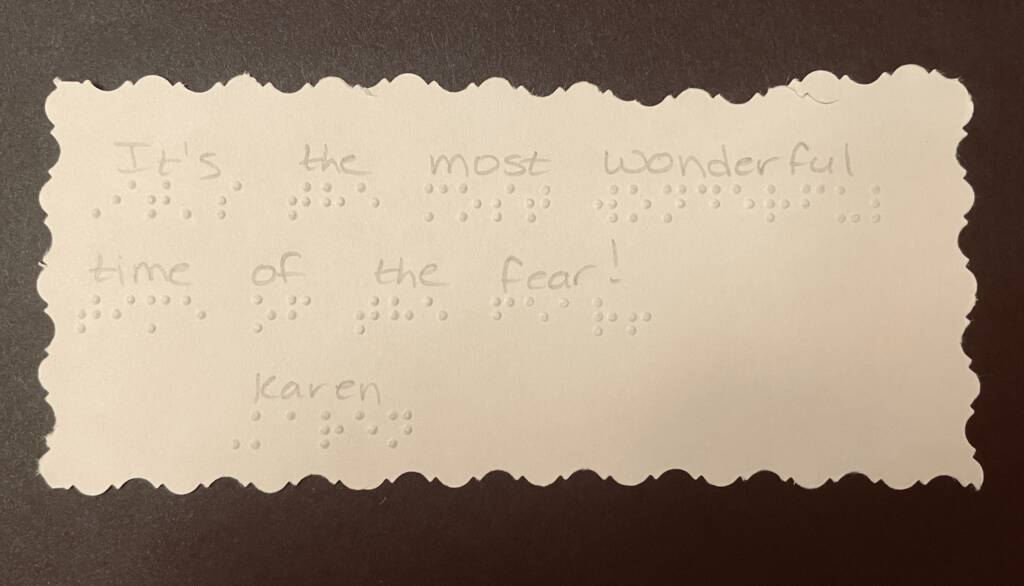 It's the most wonderful
⠠⠊⠞⠄⠎ ⠞⠓⠑ ⠍⠕⠎⠞ ⠺⠕⠝⠙⠑⠗⠋⠥⠇
time of the fear!
⠞⠊⠍⠑ ⠕⠋ ⠞⠓⠑ ⠋⠑⠁⠗⠖
Karen
⠠⠅⠁⠗⠑⠝